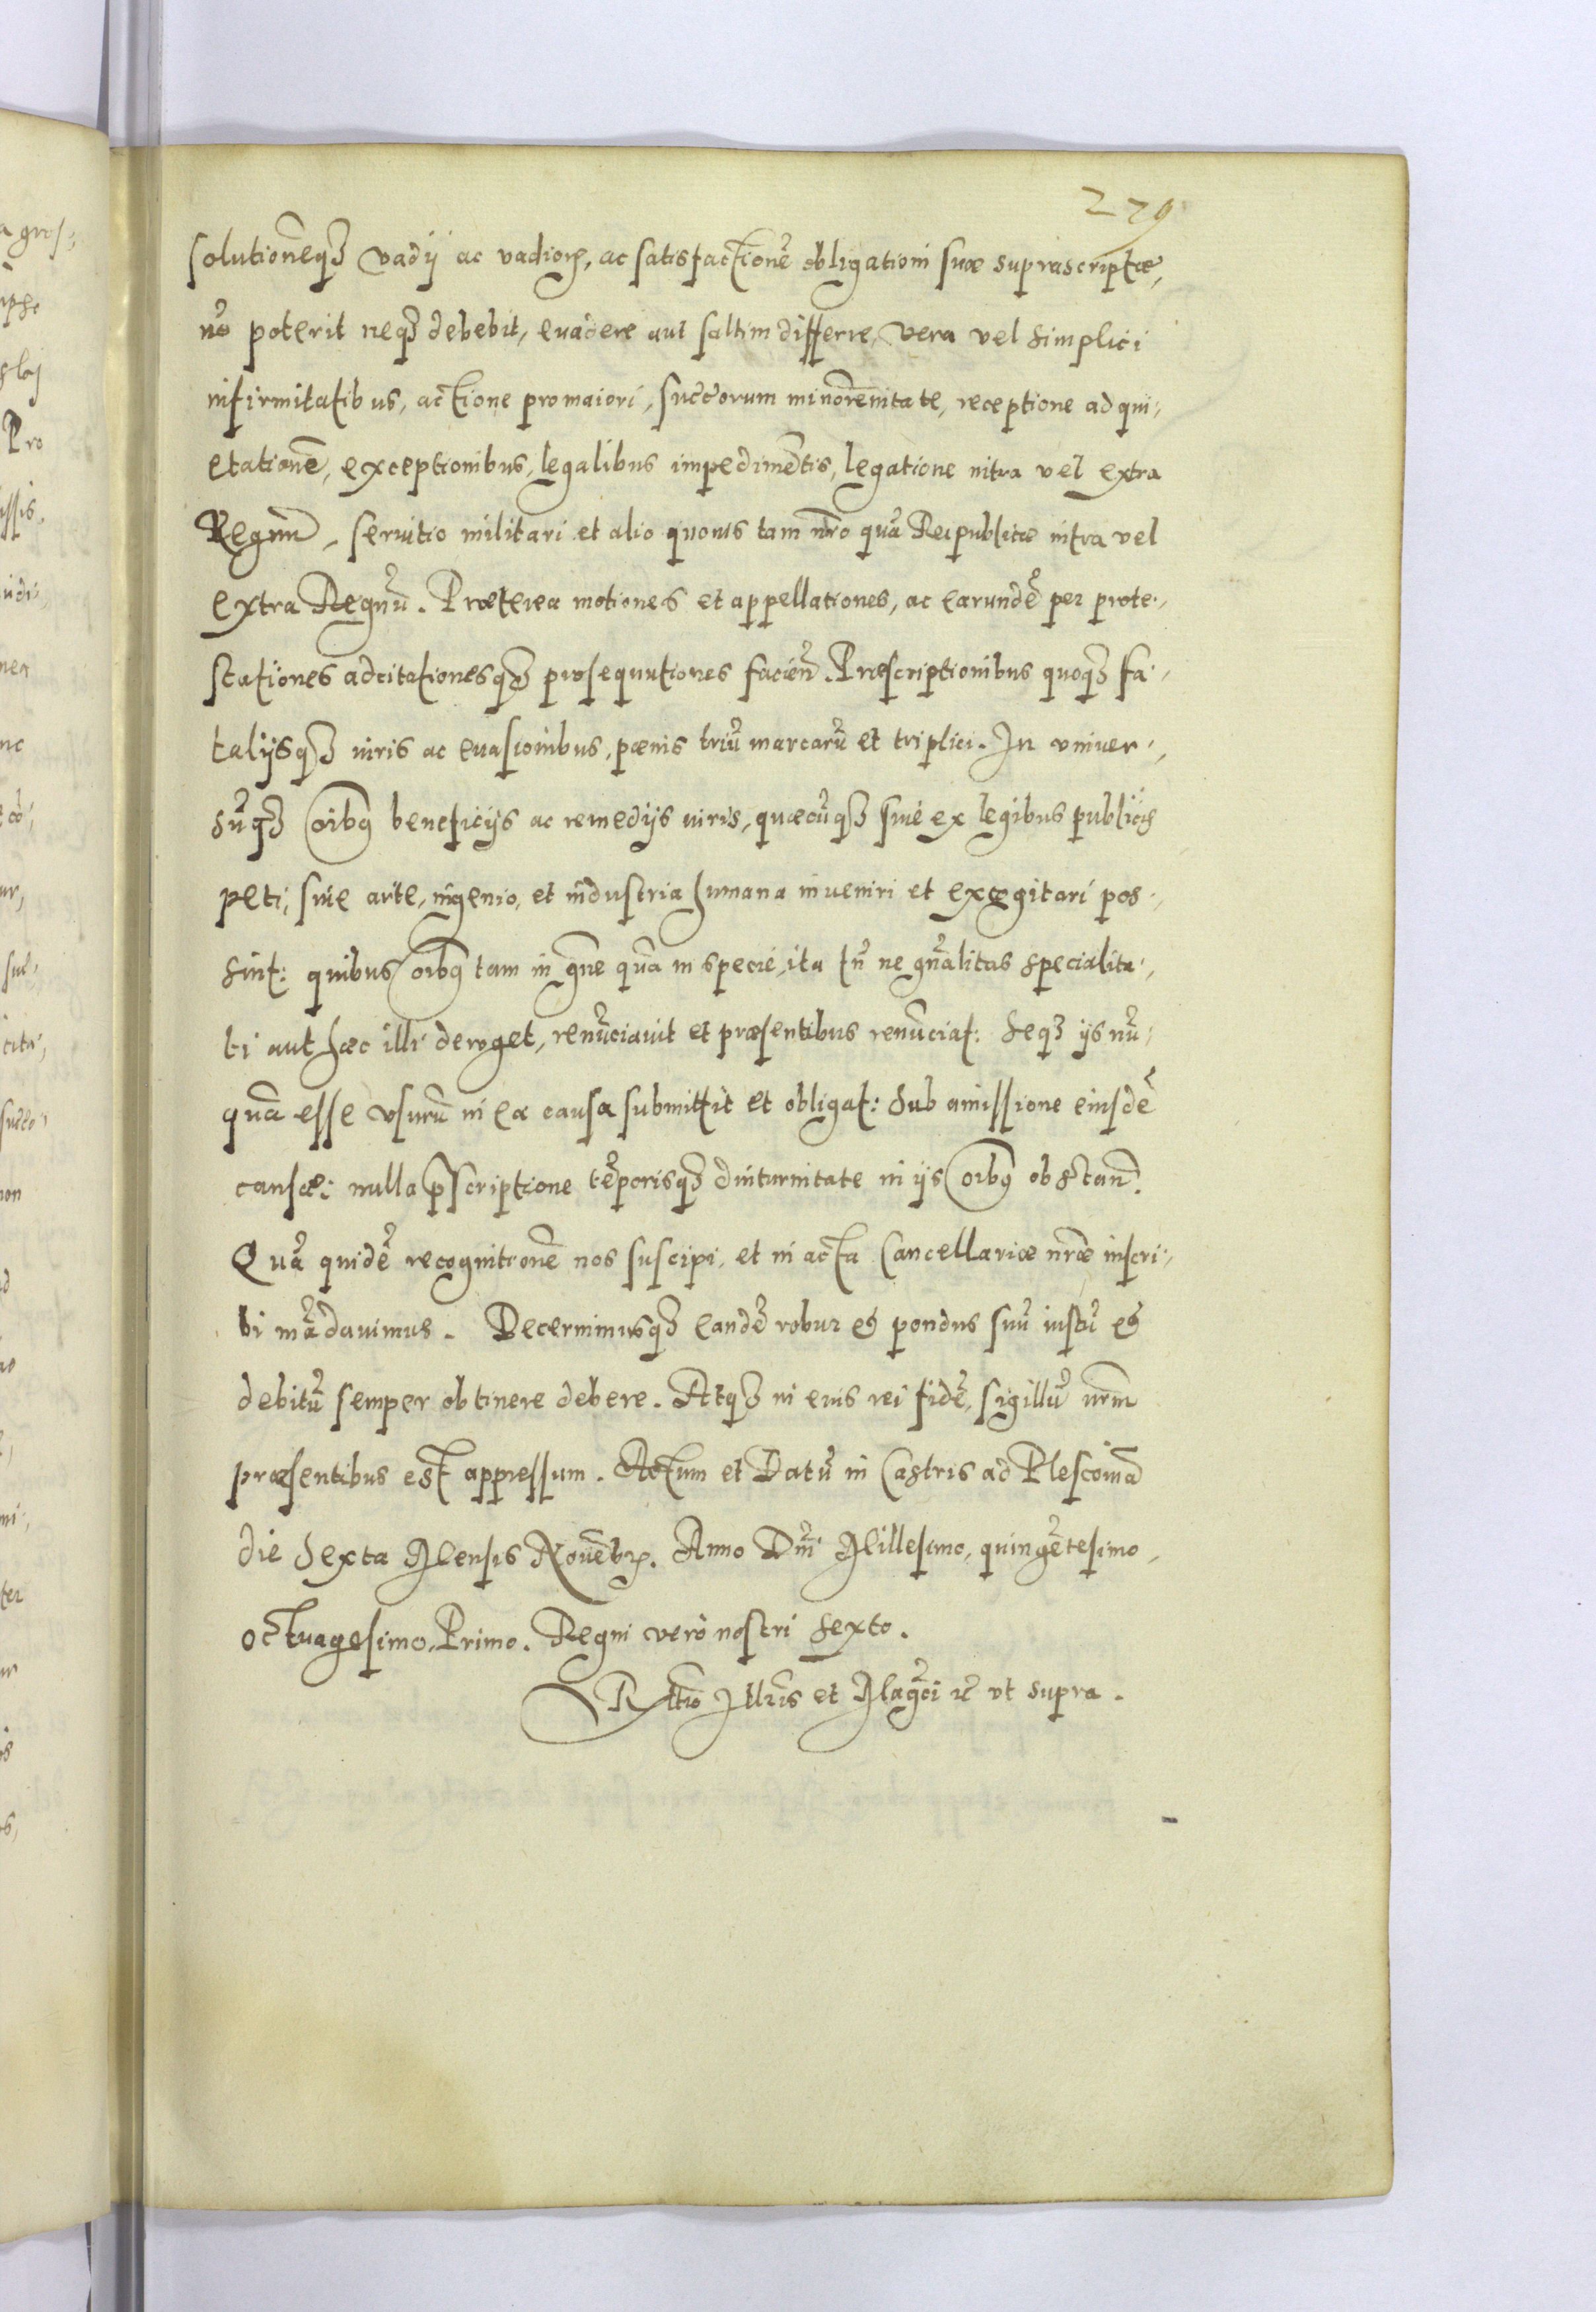 229
solutionēq₃ vadÿ ac vadioꝝ, ac satisfactionē obligationi suæ suprascriptæ,
nō poterit neq₃ debebit, euadere aut saltim differre, vera vel simplici
infirmitatibus, actione pro maiori, succorum minorēnitate, receptione ad qui,
etationē, exceptionibus, legalibus impedimētis, legatione intra vel extra
Regnū, seruitio militari et alio quouis tam nr̄o quā Reipublicæ intra vel
extra Regnū. Præterea motiones et appellationes, ac earundē per prote,
stationes adcitationesq₃ prosequutiones facien̄. Præscriptionibus quoq₃ fa,
talijsq₃ iuris ac euasionibus, pænis triū marcarū et triplici. In vniuer,
sūq₃ oībꝰ beneficijs ac remedijs iuris, quæcūq₃ siue ex legibus publicis
peti, siue arte, ingenio, et industria humana inueniri et excogitari pos,
sint: quibus oībꝰ tam in gn̄e quā in specie, ita tn̄ ne gn̄alitas specialita,
ti aut hæc illi deroget, renūciauit et præsentibus renūciat: seq₃ ijs nū,
quā esse vsurū in ea causa submittit et obligat: sub amissione eiusdē
causæ: nulla p̄scriptione tēporisq₃ diuturnitate in ijs oībꝰ obstan̄.
Quā quidē recognitionē nos suscipi, et in acta Cancellariæ nr̄æ inscri,
bi mādauimus. Decernimusq₃ eandē robur et pondus suū iustū et
debitū semper obtinere debere. Atq₃ in eius rei fidē, sigillū nr̄m
præsentibus est appressum. Actum et Datū in Castris ad Plescouiā
die sexta Mensis Nouēbꝝ. Anno Dn̄i Millesimo, quingētesimo,
octuagesimo, Primo. Regni vero nostri sexto.
Rl̄tio Ill̄ris et Magc̄i ꝛc̄ vt supra.